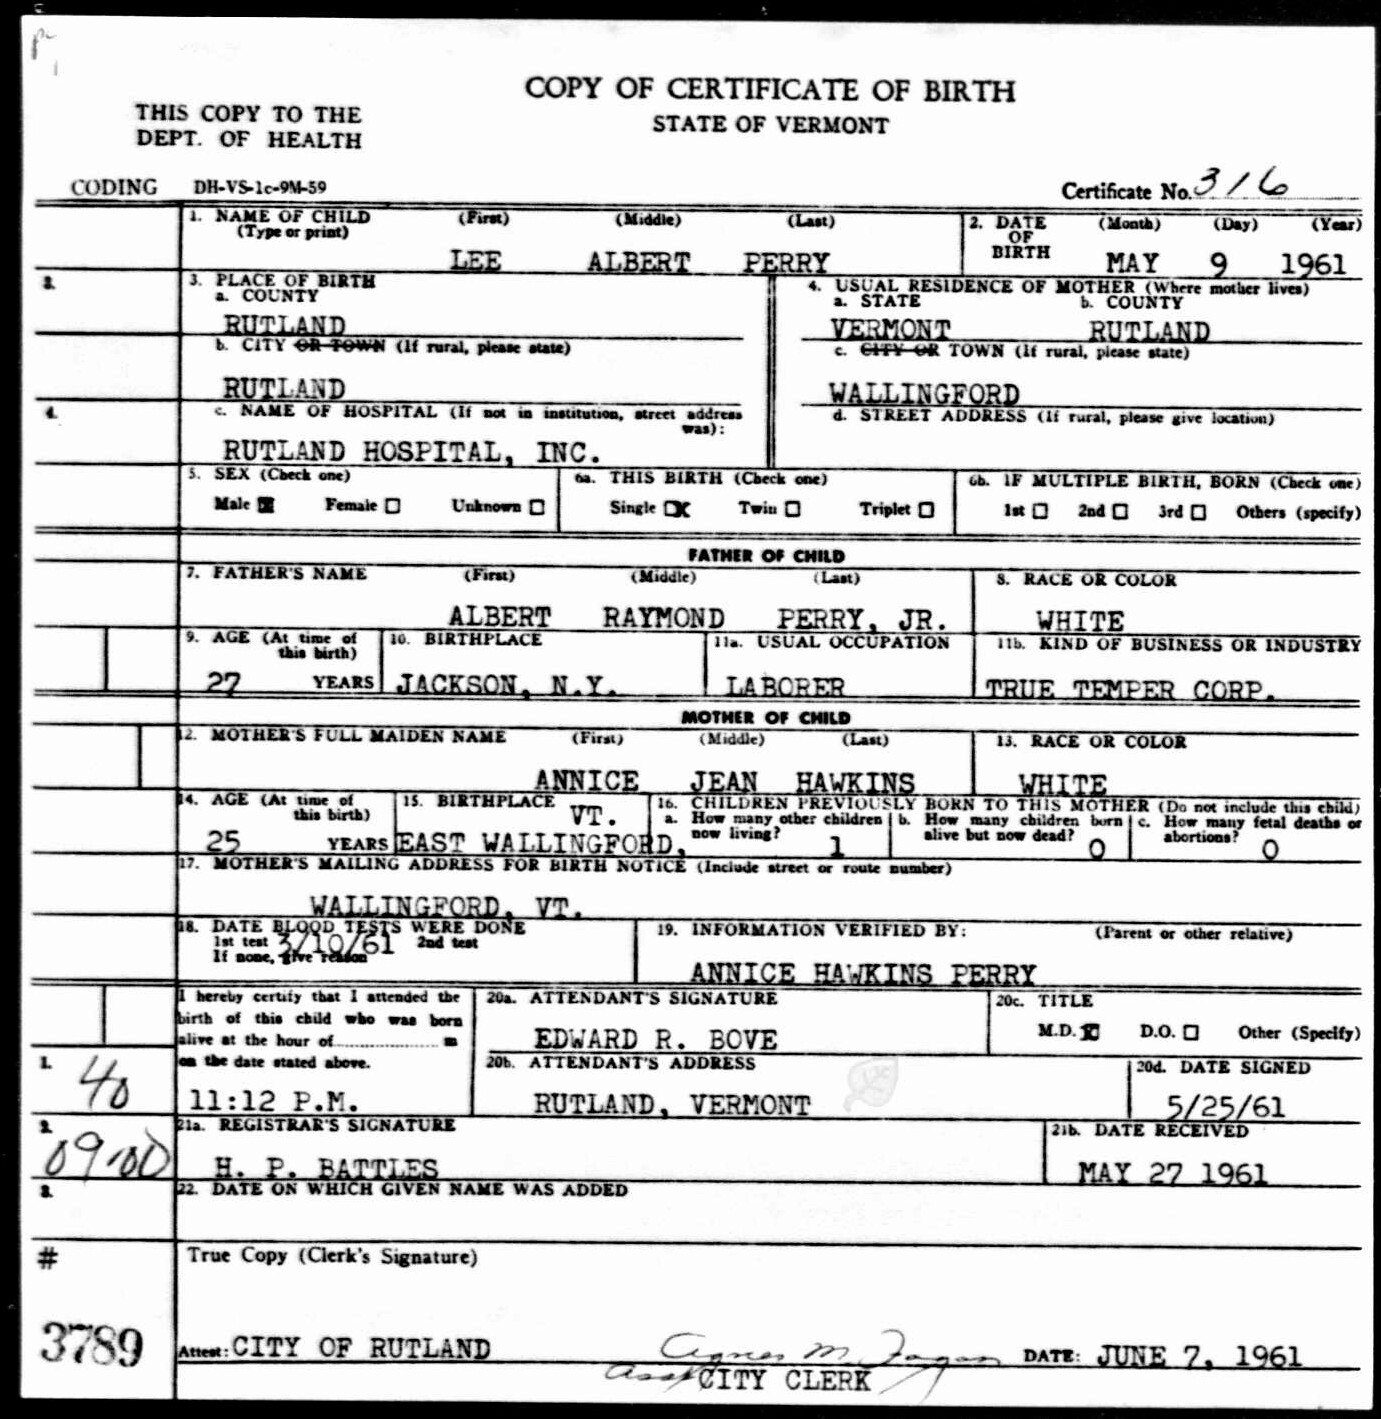 COPY OF CERTIFICATE OF BIRTH
STATE OF VERMONT
THIS COPY TO THE
DEPT. OF HEALTH
CODING DH-VS-1c-9M-59 Certificate No. 316
1. NAME OF CHILD (First) (Middle) (Last)
(Type or print)
LEE ALBERT PERRY
2. DATE OF BIRTH (Month) (Day) (Year)
MAY 9 1961
3. PLACE OF BIRTH
a. COUNTY
RUTLAND
b. CITY OR TOWN (If rural, please state)
RUTLAND
c. NAME OF HOSPITAL (If not in institution, street address
was):
RUTLAND HOSPITAL, INC.
4. USUAL RESIDENCE OF MOTHER (Where mother lives)
a. STATE b. COUNTY
VERMONT RUTLAND
c. CITY OR TOWN (If rural, please state)
WALLINGFORD
d. STREET ADDRESS (If rural, please give location)
4.
5. SEX (Check one)
Male Female Unknown
6a. THIS BIRTH (Check one)
Single Twin Triplet
6b. IF MULTIPLE BIRTH, BORN (Check one)
1st 2nd 3rd Others (specify)
FATHER OF CHILD
7. FATHER'S NAME (First) (Middle) (Last)
ALBERT RAYMOND PERRY, JR.
8. RACE OR COLOR
WHITE
9. AGE (At time of
this birth)
27 YEARS
10. BIRTHPLACE
JACKSON, N.Y.
11a. USUAL OCCUPATION
LABORER
11b. KIND OF BUSINESS OR INDUSTRY
TRUE TEMPER CORP.
MOTHER OF CHILD
12. MOTHER'S FULL MAIDEN NAME (First) (Middle) (Last)
ANNICE JEAN HAWKINS
13. RACE OR COLOR
WHITE
14. AGE (At time of
this birth)
25 YEARS
15. BIRTHPLACE
VT.
EAST WALLINGFORD,
16. CHILDREN PREVIOUSLY BORN TO THIS MOTHER (Do not include this child)
a. How many other children
now living?
1
b. How many children born
alive but now dead?
0
c. How many fetal deaths or
abortions?
0
17. MOTHER'S MAILING ADDRESS FOR BIRTH NOTICE (Include street or route number)
WALLINGFORD, VT.
18. DATE BLOOD TESTS WERE DONE
1st test 3/10/61 2nd test
If none, give reason
19. INFORMATION VERIFIED BY: (Parent or other relative)
ANNICE HAWKINS PERRY
I hereby certify that I attended the
birth of this child who was born
alive at the hour of m
on the date stated above.
11:12 P.M.
20a. ATTENDANT'S SIGNATURE
EDWARD R. BOVE
20c. TITLE
M.D. D.O. Other (Specify)
20b. ATTENDANT'S ADDRESS
RUTLAND, VERMONT
20d. DATE SIGNED
5/25/61
1.
40
21a. REGISTRAR'S SIGNATURE
H. P. BATTLES
21b. DATE RECEIVED
MAY 27 1961
22. DATE ON WHICH GIVEN NAME WAS ADDED
#
3789
True Copy (Clerk's Signature)
Attest: CITY OF RUTLAND Agnes M. Fagan DATE: JUNE 7, 1961
Asst CITY CLERK